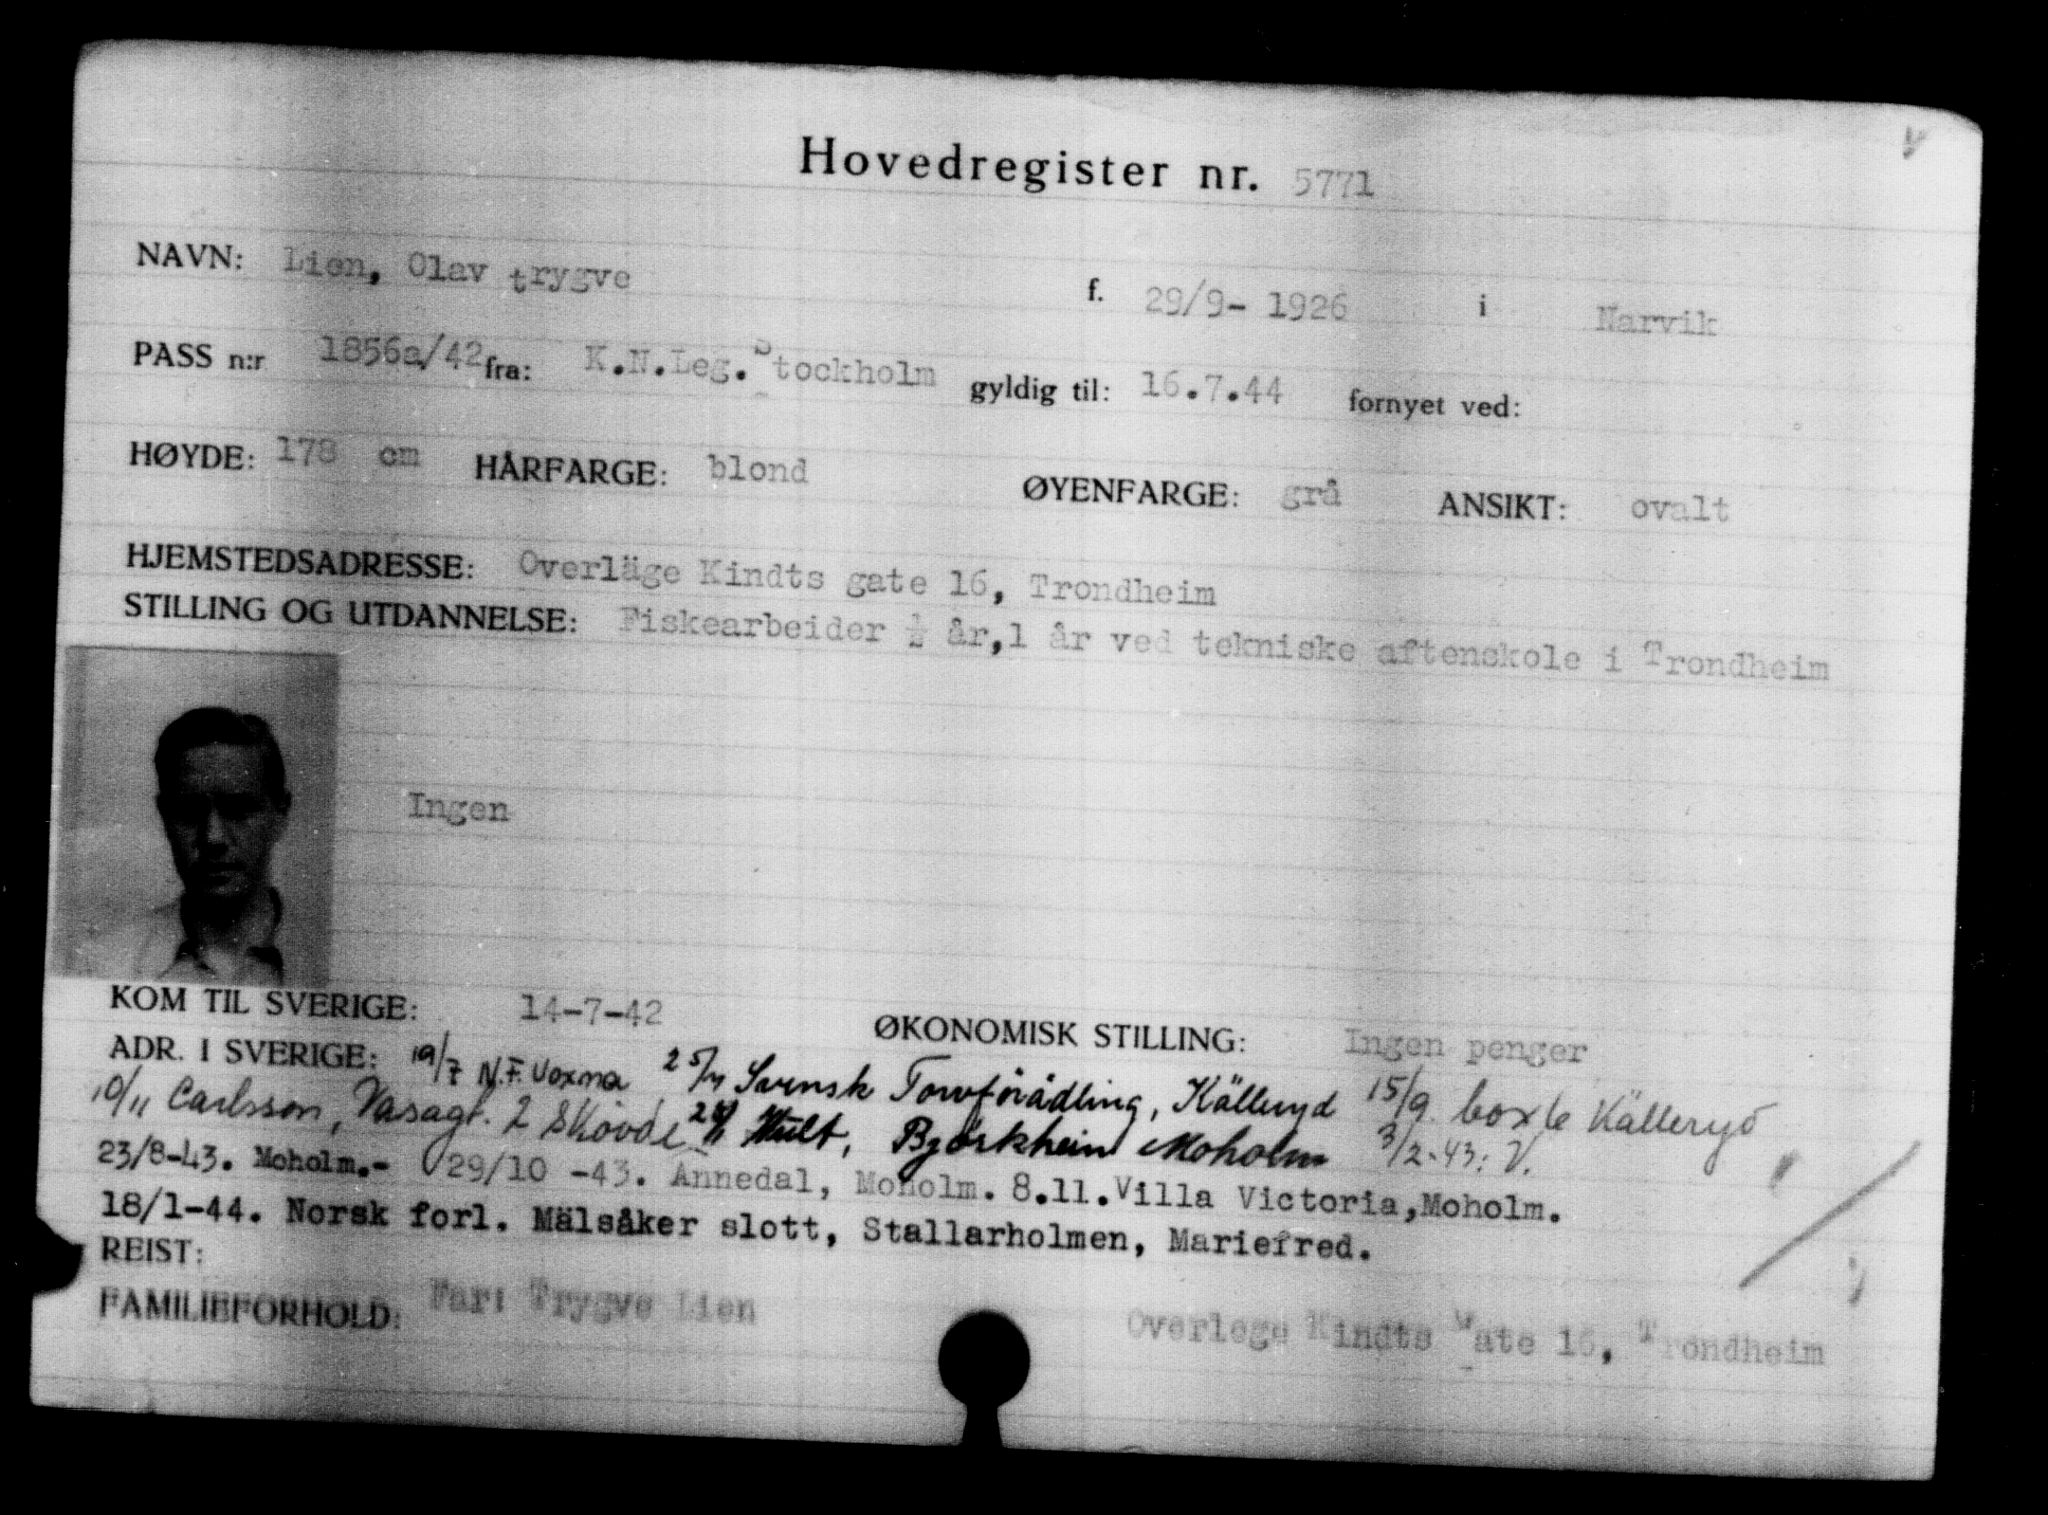 Hovedregister nr. 5771
NAVN: Lien, Olav trygve f. 29/9- 1926 i Narvik
PASS n:r 1856a/42 fra: K.N.Leg. Stockholm gyldig til: 16.7.44 fornyet ved:
HØYDE: 178 cm HÅRFARGE: blond ØYENFARGE: grå ANSIKT: ovalt
HJEMSTEDSADRESSE: Overläge Kindts gate 16, Trondheim
STILLING OG UTDANNELSE: Fiskearbeider ½ år, 1 år ved tekniske aftenskole i Trondheim
Ingen
KOM TIL SVERIGE: 14-7-42 ØKONOMISK STILLING: Ingen penger
ADR. I SVERIGE: 19/7 N.F. Voxna, 25/7 Svensk Torvförädling, Källeryd 15/9. box 6 Källeryd
10/11 Carlsson, Vasagt. 2 Skövde Hult, Björkhein Moholm 3/2-43: V.
23/8-43. Moholm.- 29/10 -43. Annedal, Moholm. 8.11. Villa Victoria, Moholm.
18/1-44. Norsk forl. Mälsåker slott, Stallarholmen, Mariefred.
REIST:
FAMILIEFORHOLD: Far: Trygve Lien Overlege Kindts Gate 16, Trondheim